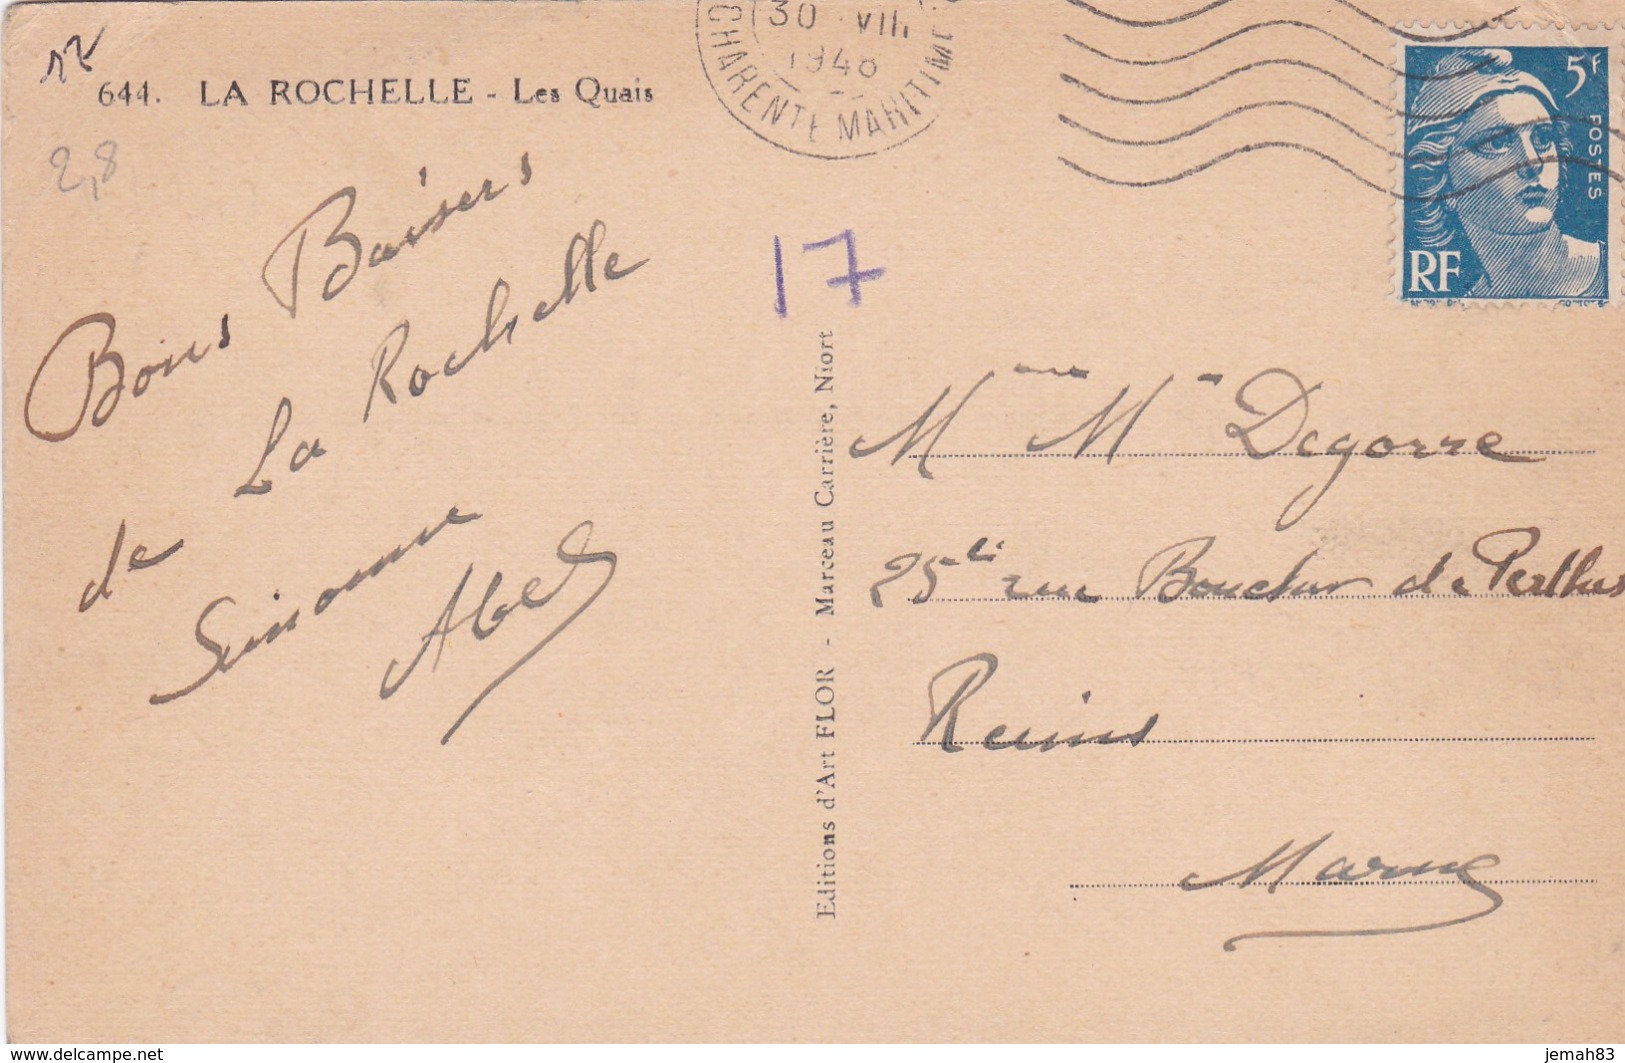 17
644. LA ROCHELLE - Les Quais
2,8
30 VII
1948
CHARENTE MARITIME
5F
POSTES
RF
17
Bons Baisers
de La Rochelle
Simonne
Abel
Editions d'Art FLOR - Marceau Carrière, Niort
Mme Mr Degorre
25 rue Boucher de Perthes
Reims
Marne
www.delcampe.net
jemah83